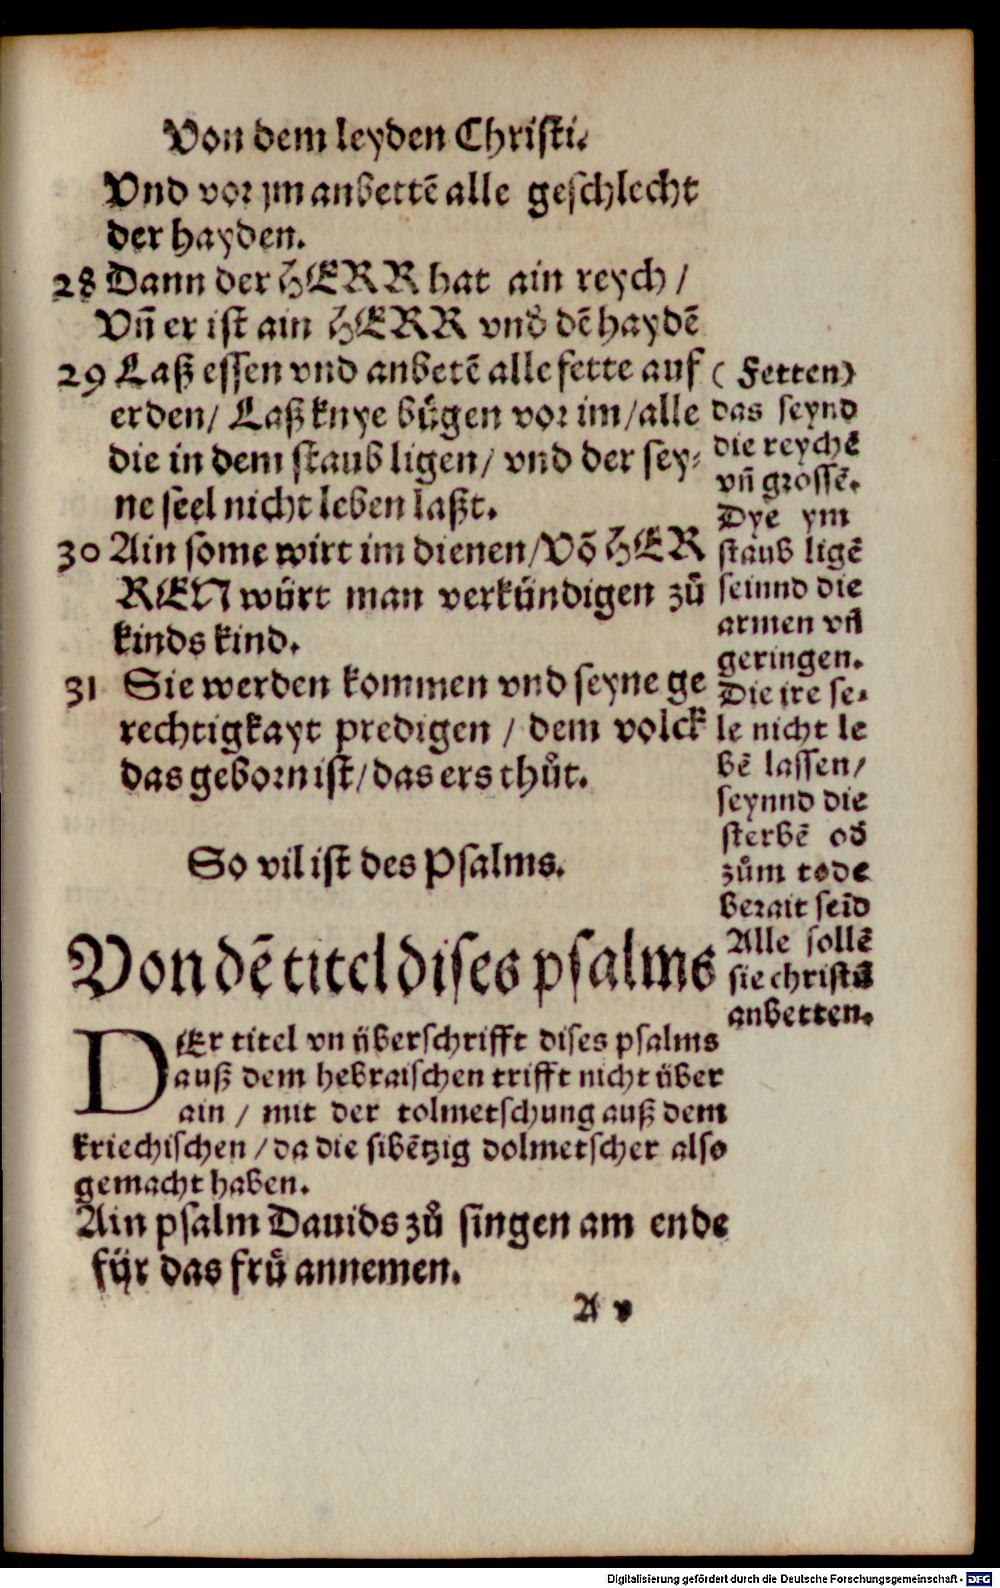 Von dem leyden Christi.
Vnd vor jm anbettē alle geschlecht
der hayden.
28 Dann der HERR hat ain reych /
Vñ er ist ain HERR vnd̕ dē haydē
29 Laß essen vnd anbetē alle fette auf
erden/ Laß knye bu̎gen vor im/alle
die in dem staub ligen/ vnd der sey⸗
ne seel nicht leben laßt.
30 Ain some wirt im dienen/Võ HER
REN wu̎rt man verku̎ndigen zů
kinds kind.
31 Sie werden kommen vnd seyne ge
rechtigkayt predigen / dem volck
das geborn ist/das ers thůt.
(Fetten)
das seynd
die reychē
vñ grossē.
Dye ym
staub ligē
seinnd die
armen vñ
geringen.
Die ire se⸗
le nicht le
bē lassen/
seynnd die
sterbē od̕
zům tode
berait seīd
Alle sollē
sie christū
anbetten.
So vil ist des Psalms.
Von dē titel dises psalms
DEr titel vn u̎berschrifft dises psalms
auß dem hebraischen trifft nicht u̎ber
ain / mit der tolmetschung auß dem
kriechischen /da die sibētzig dolmetscher also
gemacht haben.
Ain psalm Dauids zů singen am ende
für das frů annemen.
A v
Digitalisierung gefördert durch die Deutsche Forschungsgemeinschaft - DFG